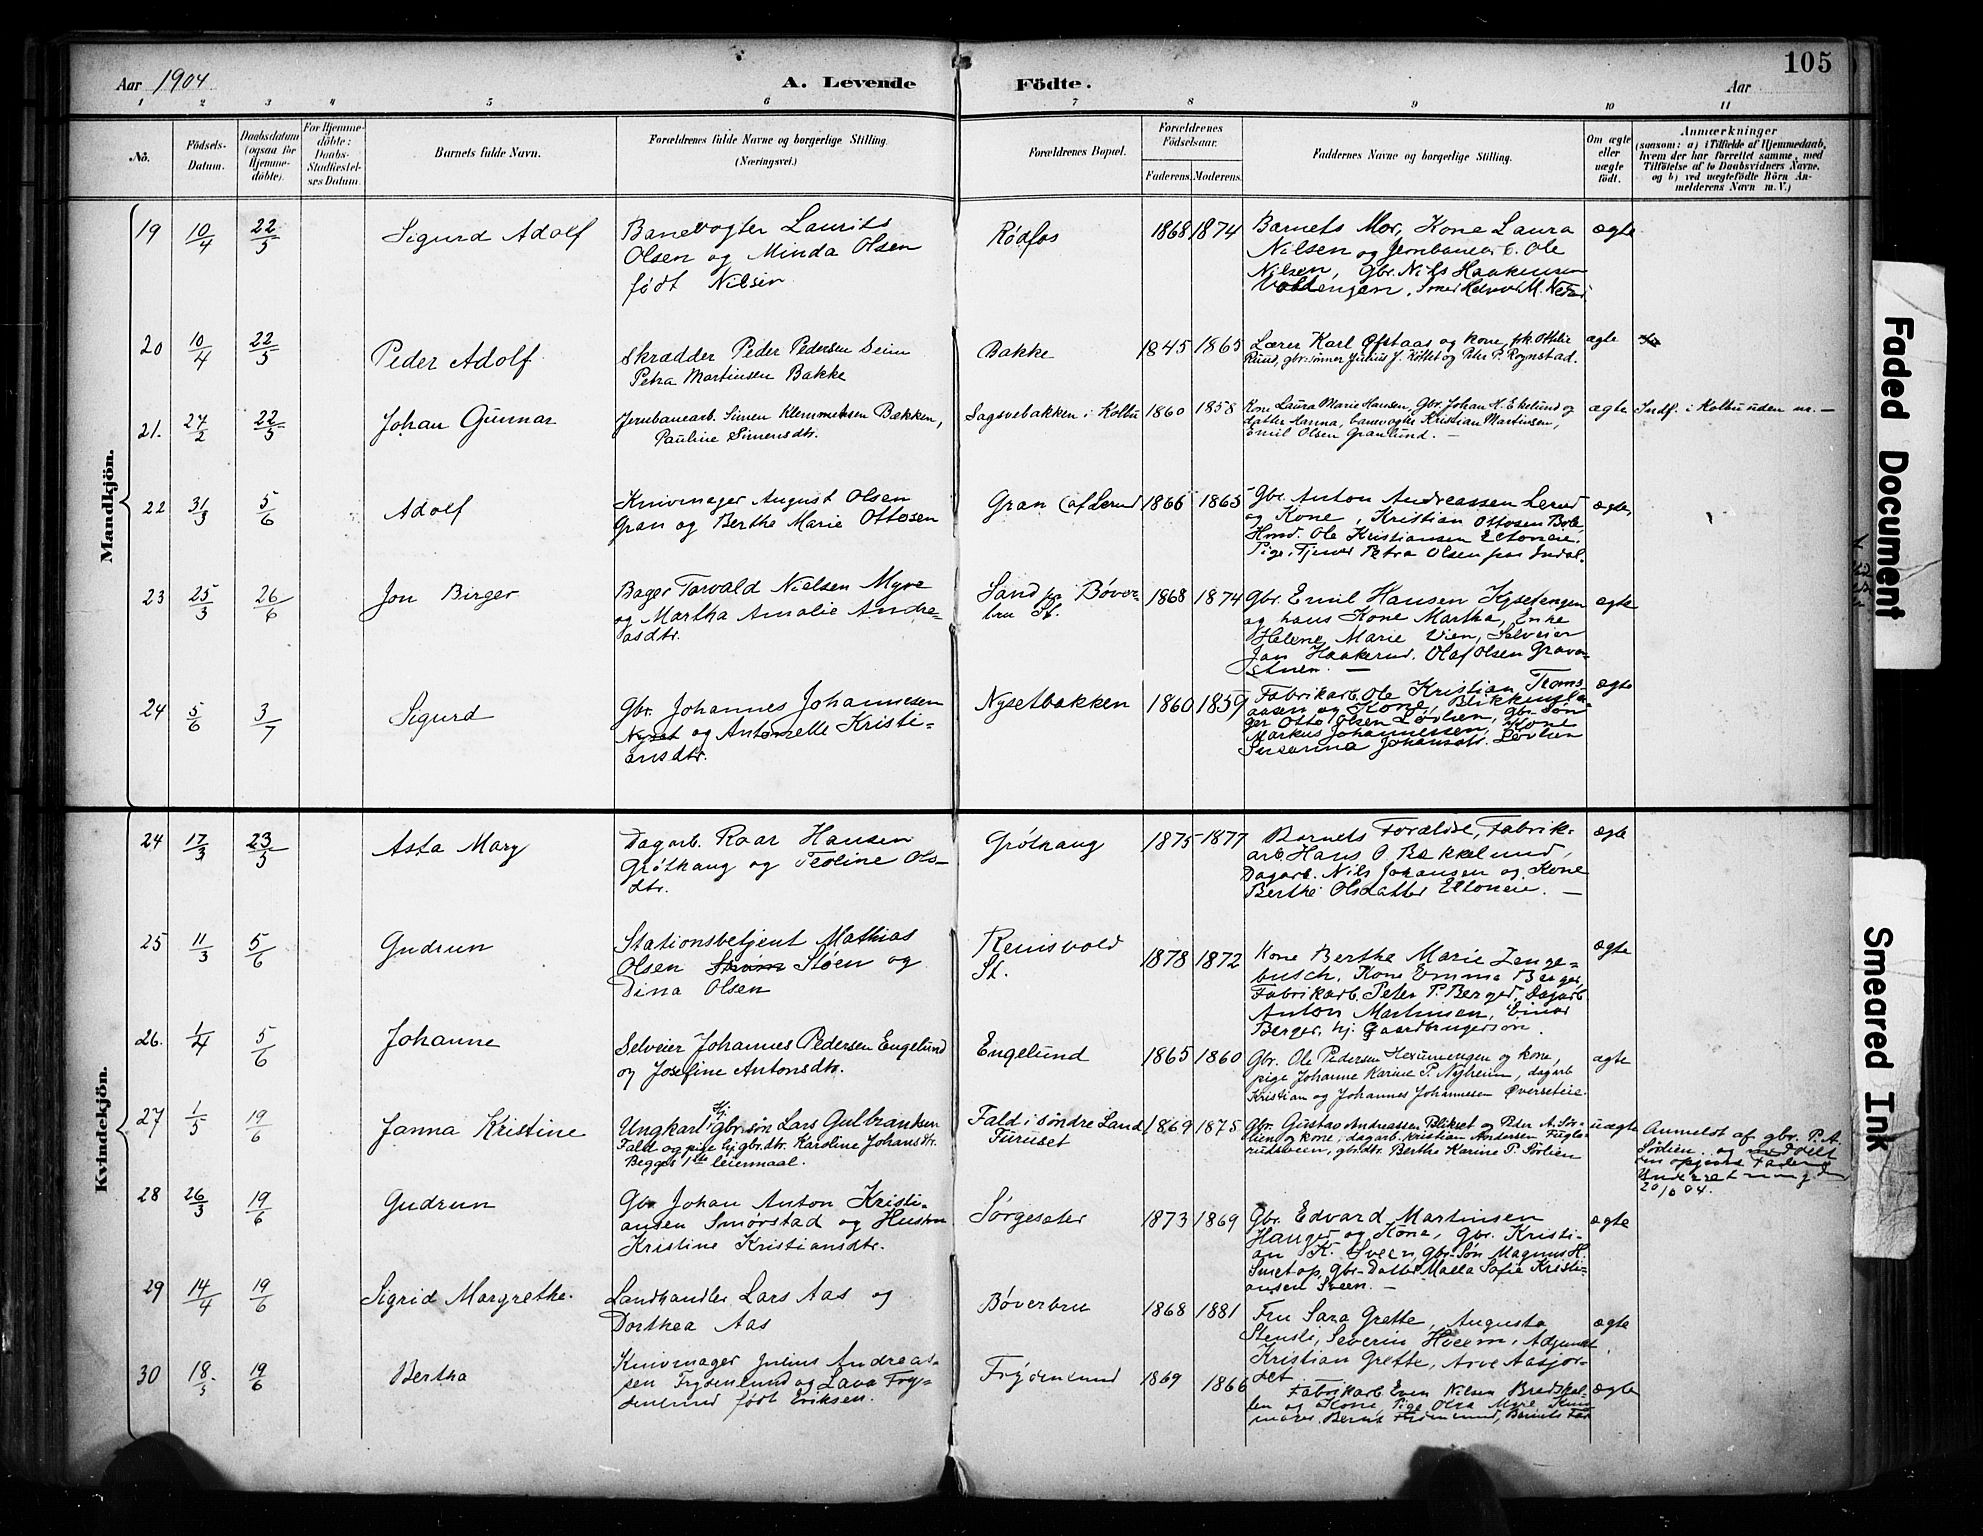 105
Aar 1904
A. Levende Födte.
Aar
1 2 3 4 5 6 7 8 9 10 11
No.
Födsels-Datum.
Daabsdatum (ogsaa for Hjemme-döbte).
For Hjemme-döbte: Daabs-Stadfæstel-ses Datum.
Barnets fulde Navn.
Forældrenes fulde Navne og borgerlige Stilling.
(Næringsvei.)
Forældrenes Bopæl.
Forældrenes Födselsaar.
Faderens. Moderens.
Faddernes Navne og borgerlige Stilling.
Om ægte eller uægte födt.
Anmærkninger
(saasom: a) i Tilfælde af Hjemmedaab,
hvem der har forrettet samme, med
Tilföielse af to Daabsvidners Navne,
og b) ved uægtefödte Börn An-
melderens Navn m. V.)
Mandkjön.
19 10/4 22/5 Sigurd Adolf
Banevogter Laurits
Olsen og Minda Olsen
født Nilsen
Rødfos 1868 1874
Barnets Mor, Kone Laura
Nilsen og Jernbanearb. Ole
Nilsen, Gbr. Nils Haakensen
Voldengen,
ægte
20 10/4 22/5 Peder Adolf
Skrædder Peder Pedersen
Petra Martinsen Bakke
Bakke 1845 1865
Lærer Karl Øfstaas og kone, frk. Othilie
Ruus, gbr.sønner Julius J. Koltet og Peter P. Rognstad.
ægte
21. 27/2 22/5 Johan Gunnar
Jernbanearb. Simen Klemmetsen Bækken,
Pauline Simensdtr.
Sagsvebakken i Kolbu 1860 1858
Kone Laura Marie Hansen, Gbr. Johan H. Ekelund og
datter Hanna, banevogter Kristian Martinsen,
Emil Olsen Granlund. —
ægte Indf. i Kolbu uden no. —
22 31/3 5/6 Adolf
Knivmager August Olsen
Gran og Berthe Marie Ottosen
Gran (af Lerud 1866 1865
Gbr. Anton Andreassen Lerud
og Kone, Kristian Ottosen
Ole Kristiansen Eltoneie.
Pige, Tjener Petra Olsen paa
ægte,
23 25/3 26/6 Jon Birger
Bager Torvald Nielsen Myre
og Martha Amalie Andre-
asdtr.
Sand pr Bøver-
bru St. 1868 1874
Gbr. Emil Hansen Kysetengen
og hans Kone Martha, Enke
Helene Marie Vien, Selveier
Jon Haakerud, Olaf Olsen Graven-
stuen. —
ægte
24 5/6 3/7 Sigurd
Gbr. Johannes Johannesen
Nyset og Antonette Kristi-
ansdtr.
Nysetbakken 1860 1859
Fabrikarb. Ole Kristian Thoms-
assen og Kone, Blikkensla-
ger Otto Olsen Løvlien, Gbr. Søn
Markus Johannessen, Kone
Susanna Johansdtr. Løvlien
ægte
Kvindekjön.
24 17/3 23/5 Asta Mary
Dagarb. Roar Hansen
Grøthaug og Teoline Ols-
dtr.
Grøthaug 1875 1877
Barnets Forældre, Fabrik-
arb. Hans O. Bækkelund,
Dagarb. Nils Johansen og Kone
Berthe Olsdatter Eltoneie. —
ægte
25 11/3 5/6 Gudrun
Stationsbetjent Mathias
Olsen Støen og
Dina Olsen
Reinsvold
St. 1878 1872
Kone Berthe Marie Zenge-
busch, Kone Emma Berger,
Fabrikarb. Peter P. Berger, Dagarb.
Anton Martinsen, Einar
Berger, hj. Gaardbrugersøn.
ægte
26. 1/4 5/6 Johanne
Selveier Johannes Pedersen Engelund
og Josefine Antonsdtr.
Engelund 1865 1860
Gbr. Ole Pedersen Hexumengen og kone,
pige Johanne Karine P. Nyheim, dagarb
Kristian og Johannes Johannesen Øverseteie
ægte
27 1/5 19/6 Janna Kristine
Ungkarl, hj. gbr.søn Lars Gulbranken
Fald og pige hj. gbr.dtr. Karoline Johansdtr.
Begges 1ste leiermaal.
Fald i søndre Land
Furuset 1869 1875
Gbr. Gustav Andreassen Blikset og Peder A. Sør-
lien og kone, dagarb. Kristian Andersen Fugle-
rudsveen, gbr.dtr. Berthe Karine P. Sørlien
uægte Anmeldt af gbr. P. A.
Sørlien. og meddelt
den opgivne Fader
Underretning
20/6 04.
28 26/3 19/6 Gudrun
Gbr Johan Anton Kristi-
ansen Smørstad og Hustru
Kristine Kristiansdtr.
Sørgeseter 1873 1869
Gbr. Edvard Martinsen
Hanger og Kone, Gbr. Kristi-
an K. Sveen, gbr-Søn Magnus H.
Smetop, gbr-Datter Maela Sofie Kristi-
ansen Sveen. —
ægte
29 14/4 19/6 Sigrid Margrethe.
Landhandler Lars Aas og
Dorthea Aas
Bøverbru 1868 1881
Fru Sara Grette, Augusta
Stensli, Severin Hveem, Adjunkt
Kristian Grette, Arve Aasjor-
det
ægte
30 18/5 19/6 Bertha
Knivmager Julius Andreas-
sen Frydenlund og Lava Fry-
denlund født Eriksen.
Frydenlund 1869 1866
Fabrikarb. Even Nilsen Bredskal-
len og Kone, Pige Olra Myre
Bernt Frydenlund, Barnets Far
ægte
Faded Document
Smeared Ink